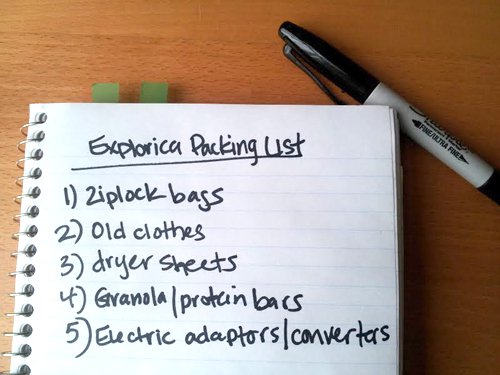 Explorica Packing List
1) Ziplock bags
2) Old clothes
3) dryer sheets
4) Granola/protein bars
5) Electric adaptors/converters
FINE/ULTRA FINE